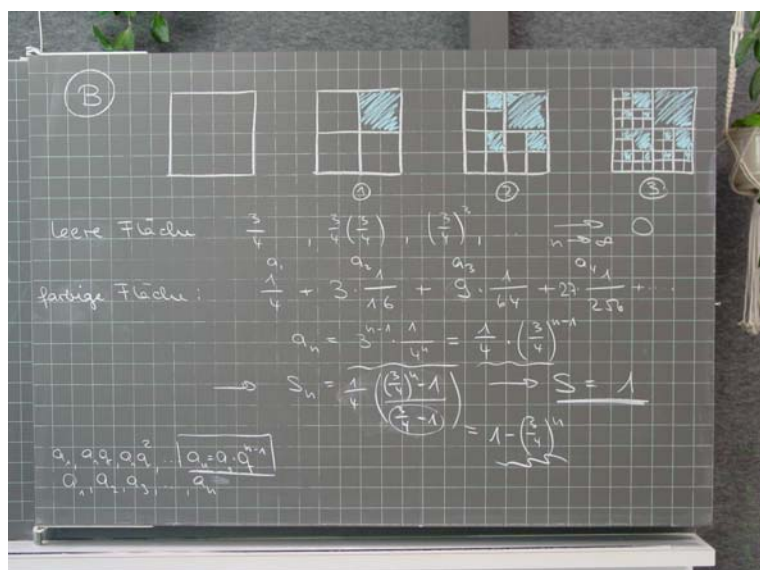 B
① ② ③
leere Fläche 3/4 , 3/4(3/4) , (3/4)³, → n→∞ 0
a₁ a₂ a₃ a₄
farbige Fläche: 1/4 + 3·1/16 + 9·1/64 + 27·1/256 + ...
aₙ = 3ⁿ⁻¹·1/4ⁿ = 1/4·(3/4)ⁿ⁻¹
→ Sₙ = 1/4 (((3/4)ⁿ-1)/(3/4-1)) → S = 1
= 1-(3/4)ⁿ
a₁, a₁q, a₁q², ... aₙ=a₁·qⁿ⁻¹
a₁, a₂, a₃, ..., aₙ